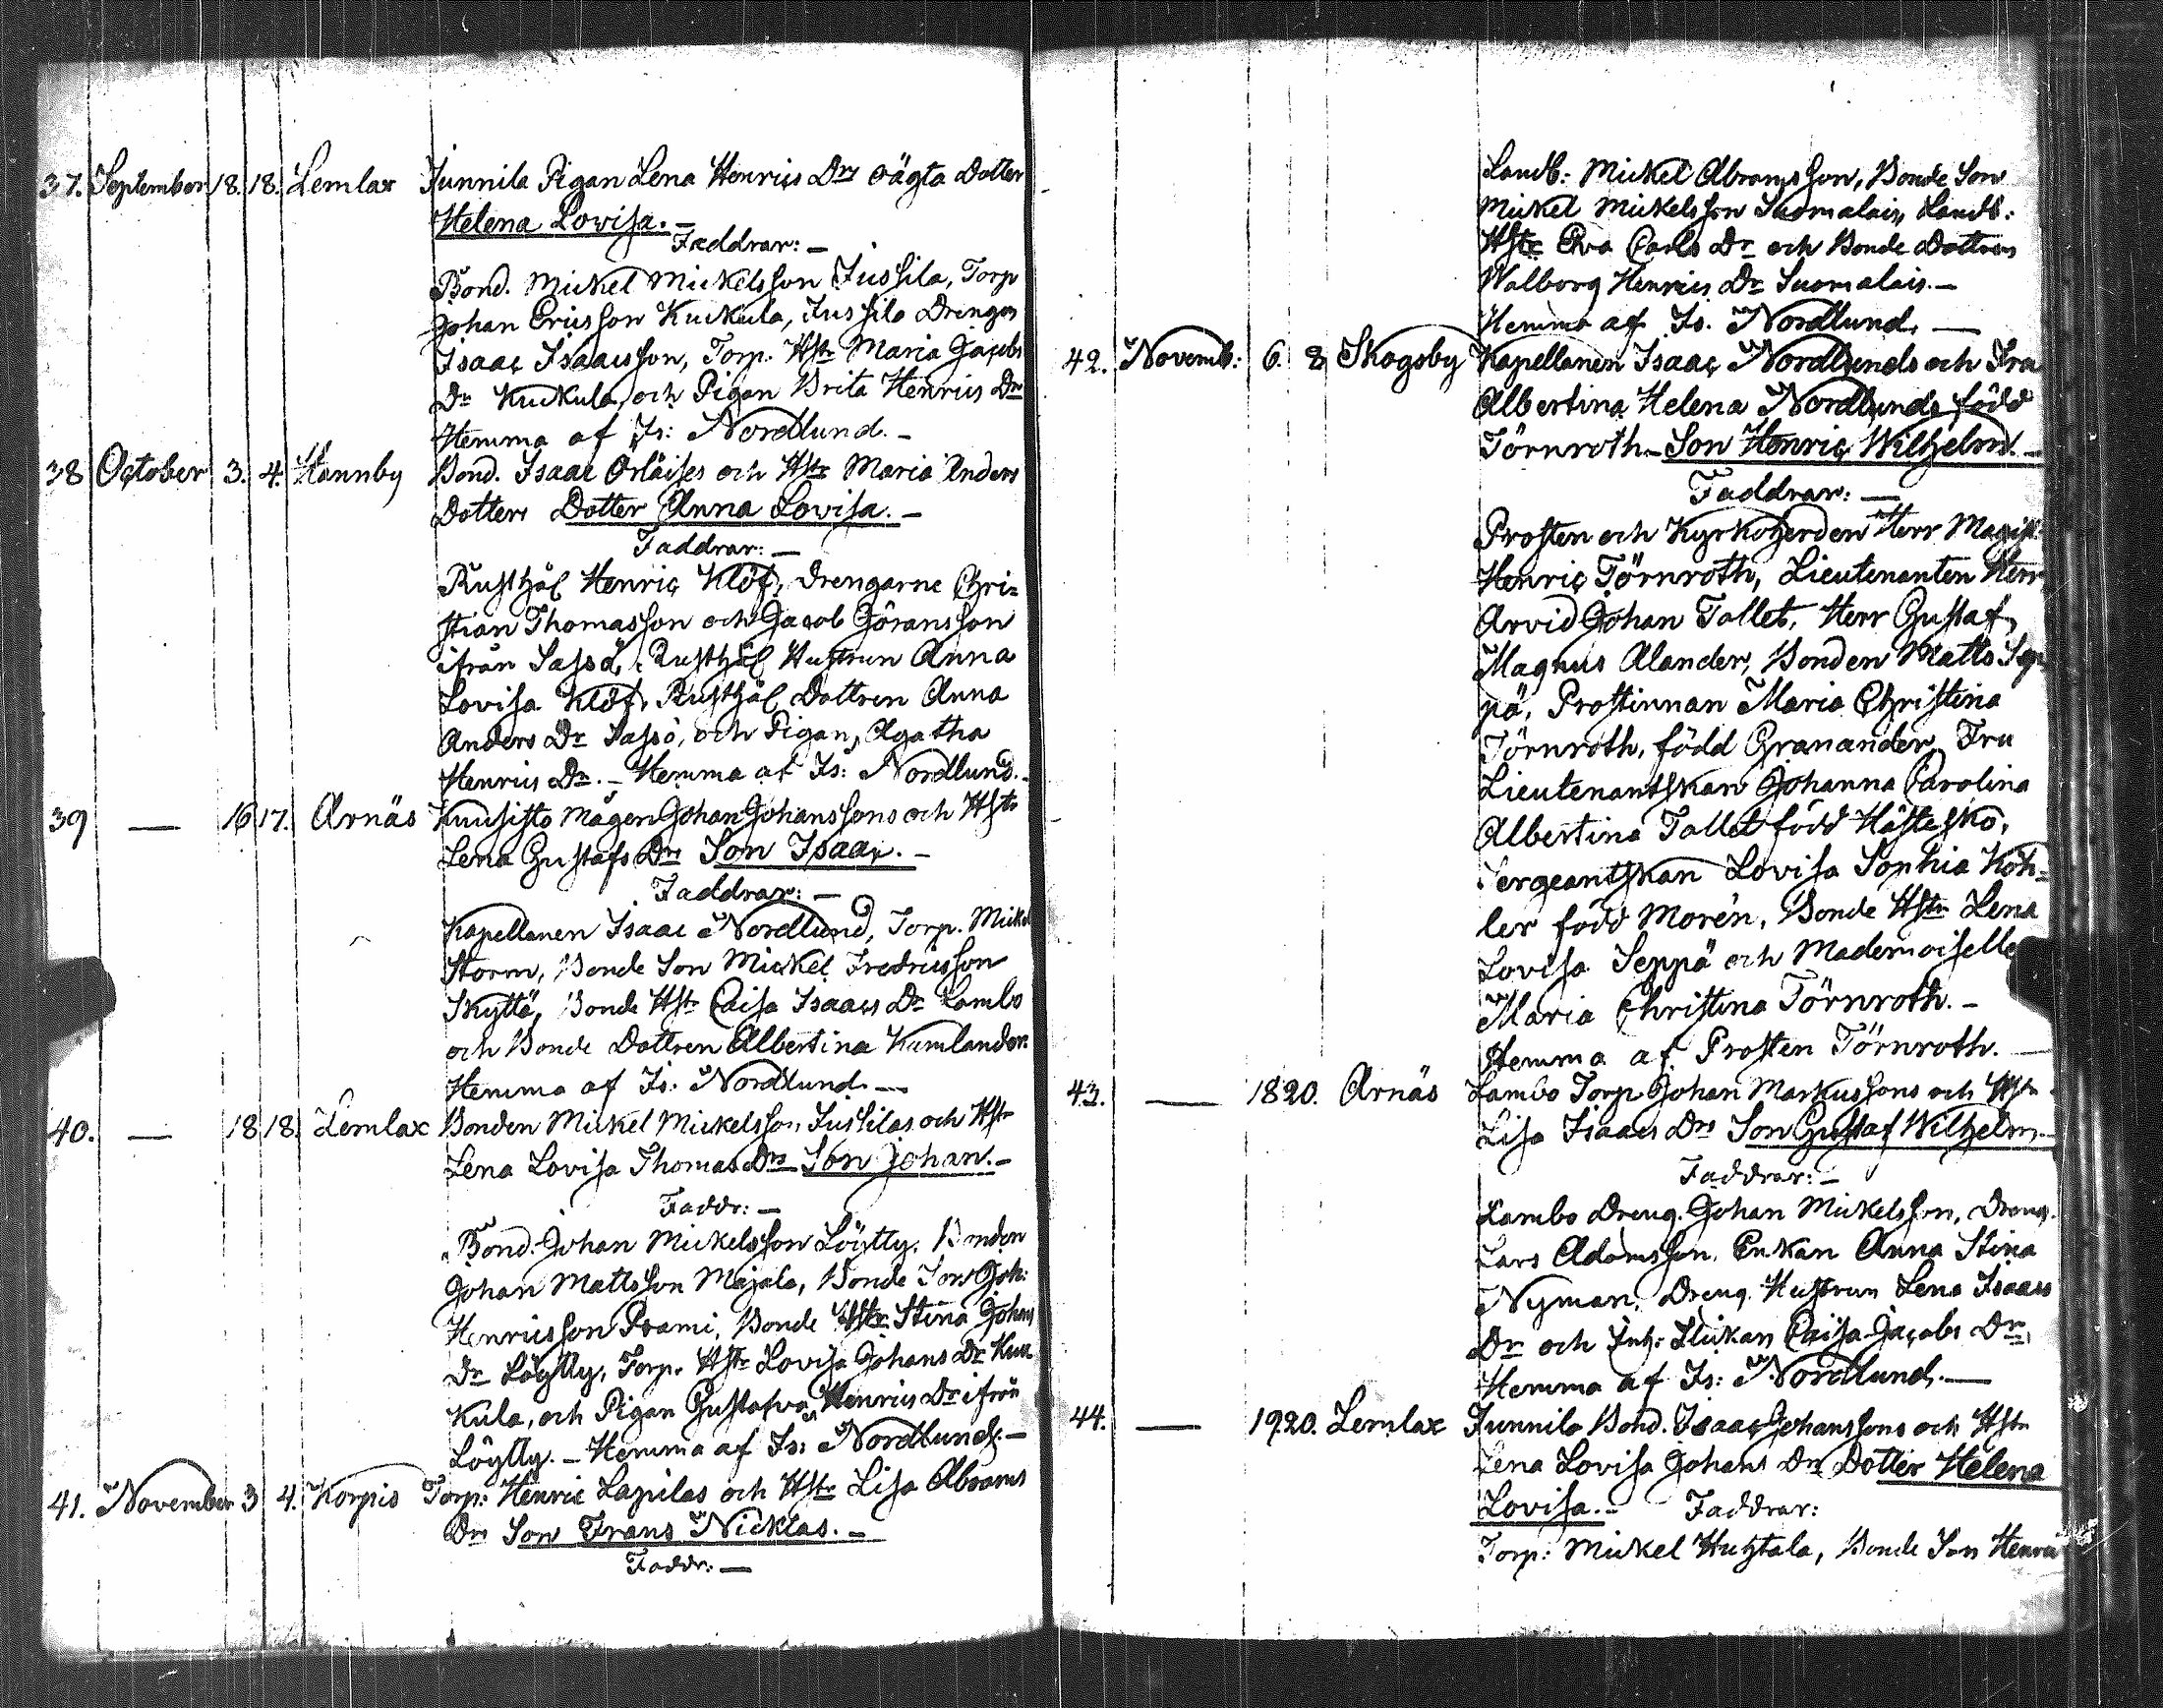 37. September 18. 18. Lemlax Junnila Pigan Lena Henrics Drs oägta Dotter
Helena Lovisa. —
Faddrar: —
Bond. Mickel Mickelsson Jussila, Torp
Johan Ericsson Kuckula, Jussila Drengen
Isaac Isaacsson, Torp. Hstr Maria Jacobs
Dr Kuckula, och Pigan Brita Henrics Dr
Hemma af Is: Nordlund. —
38 October 3. 4. Hannby Bond. Isaac Orläises och Hstr Maria Anders
Dotters Dotter Anna Lovisa. —
Faddrar: —
Rusthål Henric Klöf, Drengarne Chri=
stian Thomasson och Jacob Göransson
ifrån Sassö, Rusthål Hustrun Anna
Lovisa Klöf, Rusthål Dottren Anna
Anders Dr Sassö, och Pigan Agatha
Henrics Dr. — Hemma af Is: Nordlund. —
39 — 16 17. Arnäs Kuusisto Mågen Johan Johanssons och Hstr
Lena Gustafs Drs Son Isaac. —
Faddrar: —
Kapellanen Isaac Nordlund, Torp. Mickel
Storm, Bonde Son Mickel Fredricsson
Skyttä, Bonde Hstr Caisa Isaacs Dr Lambo
och Bonde Dottren Albertina Kumlander.
Hemma af Is: Nordlund. —
40. — 18 18. Lemlax Bonden Mickel Mickelsson Jussilas och Hstr
Lena Lovisa Thomas Drs Son Johan. —
Faddr: —
Bond. Johan Mickelsson Löytty, Bonden
Johan Mattsson Majala, Bonde Son Joh:
Henricsson Prami, Bonde Hstr Stina Johans
Dr Löytty, Torp. Hstr Lovisa Johans Dr Kuc
kula, och Pigan Gustafva Henrics Dr ifrån
Löytty. — Hemma af Is: Nordlund. —
41. November 3 4. Korpis Torp: Henric Lapilas och Hstr Lisa Abrams
Drs Son Frans Nicklas. —
Faddr: —
Landb: Mickel Abramsson, Bonde Son
Mickel Mickelsson Suomalais, Landb:
Hstr Eva Carls Dr och Bonde Dottren
Walborg Henrics Dr Suomalais. —
Hemma af Is. Nordlund. —
42. Novemb: 6. 8 Skogsby Kapellanen Isaac Nordlunds och Fru
Albertina Helena Nordlunds född
Törnroth — Son Henric Wilhelm. —
Faddrar: —
Prosten och Kyrkoherden Herr Magist.
Henric Törnroth, Lieutenanten Herr
Arvid Johan Tallet, Herr Gustaf
Magnus Alander, Bonden Matts Sep
pä, Prostinnan Maria Christina
Törnroth, född Granander, Fru
Lieutenantskan Johanna Carolina
Albertina Tallet född Hästesko,
Sergeantskan Lovisa Sophia Köh=
ler född Morén, Bonde Hstr Lena
Lovisa Seppä och Mademoiselle
Maria Christina Törnroth. —
Hemma af Prosten Törnroth. —
43. — 18 20. Arnäs Lambo Torp Johan Markussons och Hstr
Lisa Isaacs Drs Son Gustaf Wilhelm. —
Faddrar: —
Lambo Dreng. Johan Mickelsson, Dreng.
Lars Adamsson, Enkan Anna Stina
Nyman, Dreng. Hustrun Lena Isaacs
Dr och Inh: Flickan Caisa Jacobs Dr,
Hemma af Is: Nordlund. —
44. — 19 20. Lemlax Junnila Bond. Isaac Johanssons och Hstr
Lena Lovisa Johans Drs Dotter Helena
Lovisa. — Faddrar:
Torp: Mickel Huhtala, Bonde Son Henric